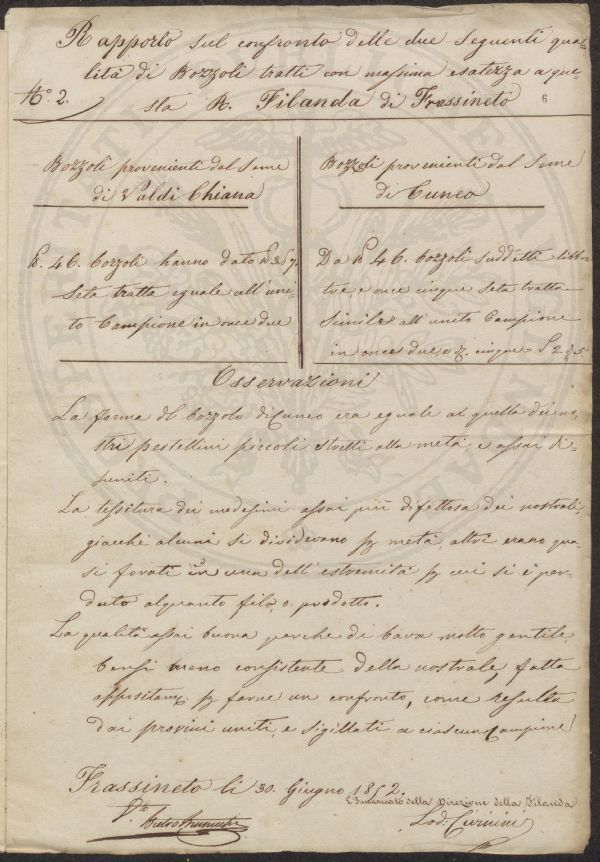 Rapporto sul confronto delle due seguenti qua=
lità di Bozzoli tratti con massima esatezza a que=
N.° 2.
sta R. Filanda di Frassineto
6
Bozzoli provenienti dal Seme
di Valdi Chiana
46. bozzoli hanno dato 3. 7.
Seta tratta eguale all'uni=
to Campione in once due
Bozzoli provenienti dal Seme
di Cuneo
Da 46. bozzoli suddetti libbre
tre, e once cinque Seta tratta
Simile all'unito Campione
in once due, cinque =
Osservazioni
La forma del bozzolo di Cuneo era eguale a quella dei no=
stri pestellini piccoli stretti alla metà e assai di=
suniti.
La tessitura dei medesimi assai più difettosa dei nostrali,
giacchè alcuni si dividevano p metà, altri erano qua=
si forati in una dell'estremità p cui si è per=
duto alquanto filo, o prodotto.
La qualità assai buona perchè di bava molto gentile
bensì meno consistente della nostrale, fatta
appositam. p farne un confronto, come resulta
dai provini uniti, e sigillati a ciascun Campione
Frassineto li 30. Giugno 1852.
L'Incaricato della Direzione della Filanda
V.to
Pietro
Lod: